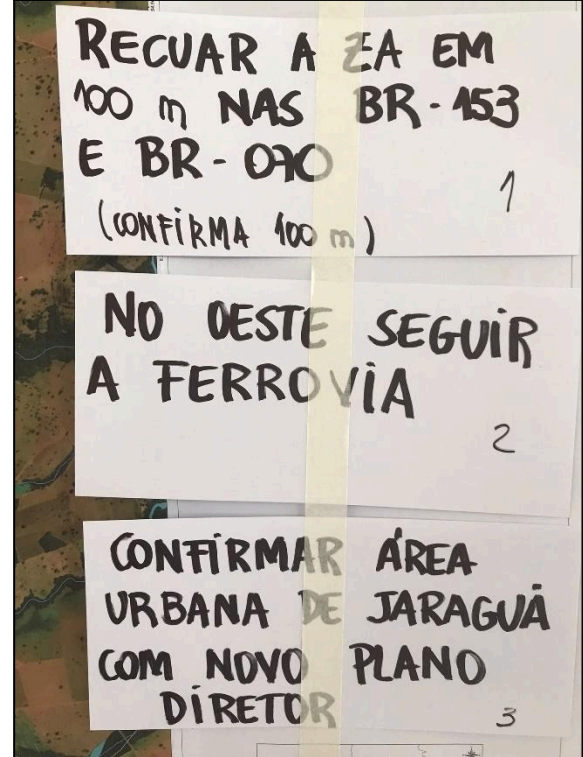 RECUAR A ZA EM
100 m NAS BR-153
E BR-070
(CONFIRMA 100 m)
1
NO OESTE SEGUIR
A FERROVIA
2
CONFIRMAR ÁREA
URBANA DE JARAGUÁ
COM NOVO PLANO
DIRETOR
3